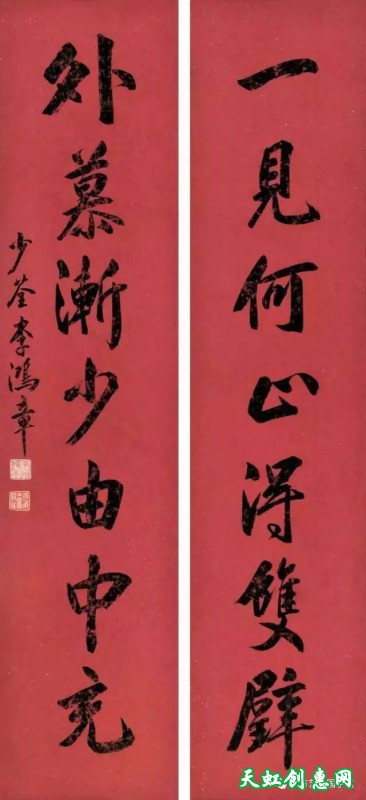 一見何止得雙璧
外慕漸少由中充
少荃李鴻章
天虹创惠网